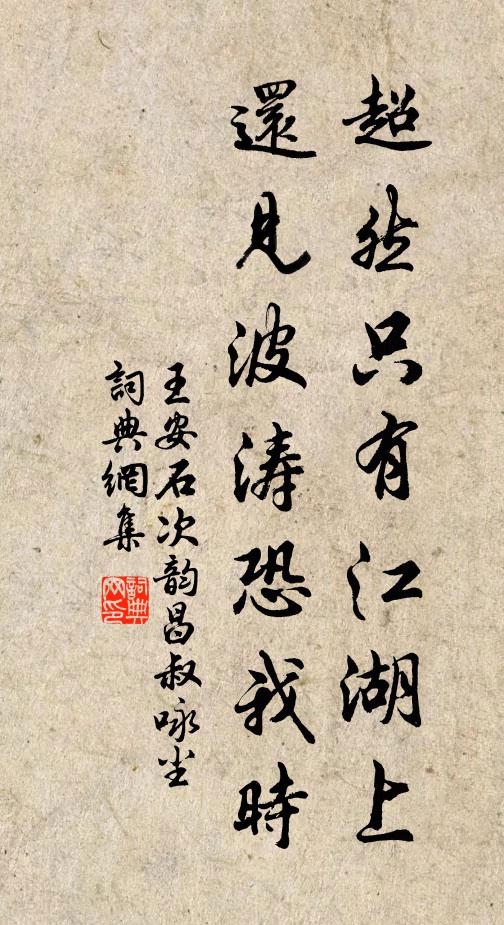 超然只有江湖上
還見波濤恐我時
王安石次韵昌叔咏尘
詞典網集
詞典
网印